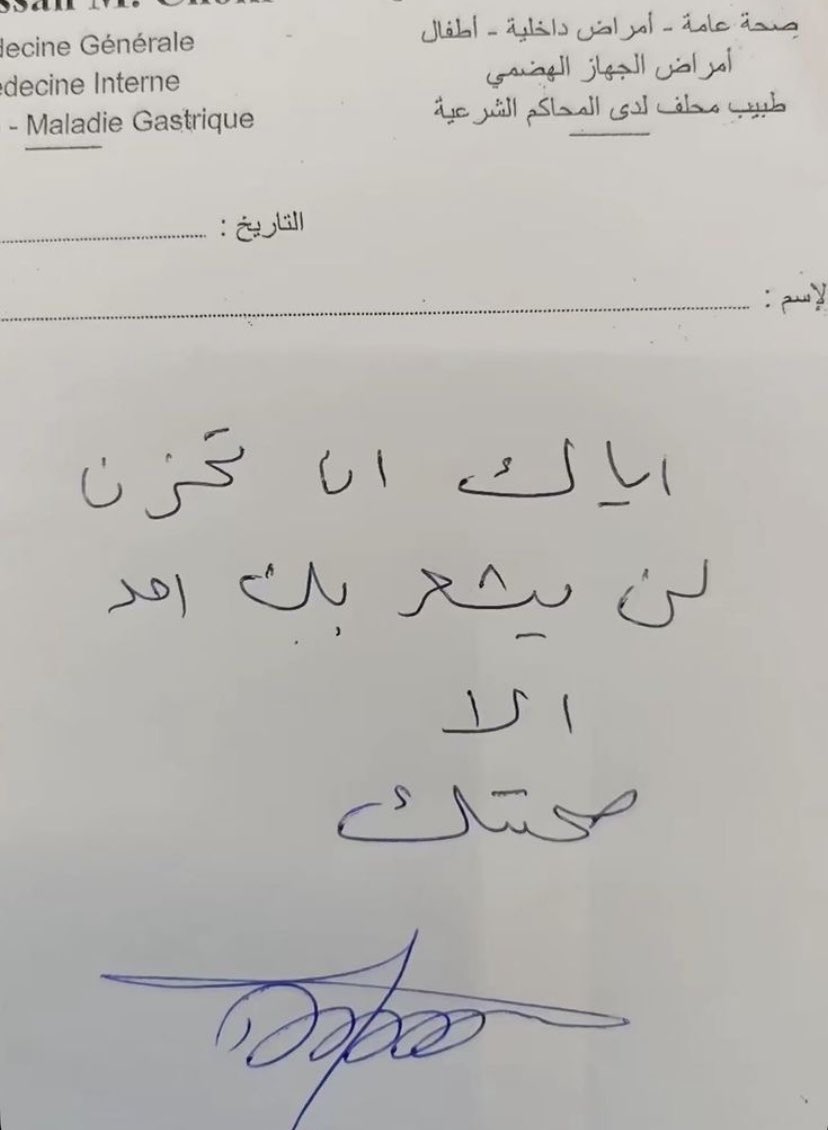 decine Générale
decine Interne
- Maladie Gastrique
صحة عامة - أمراض داخلية - أطفال
أمراض الجهاز الهضمي
طبيب محلف لدى المحاكم الشرعية
التاريخ :
لإسم :
اياك ان تحزن
لن يشعر بك احد
الا
صحتك